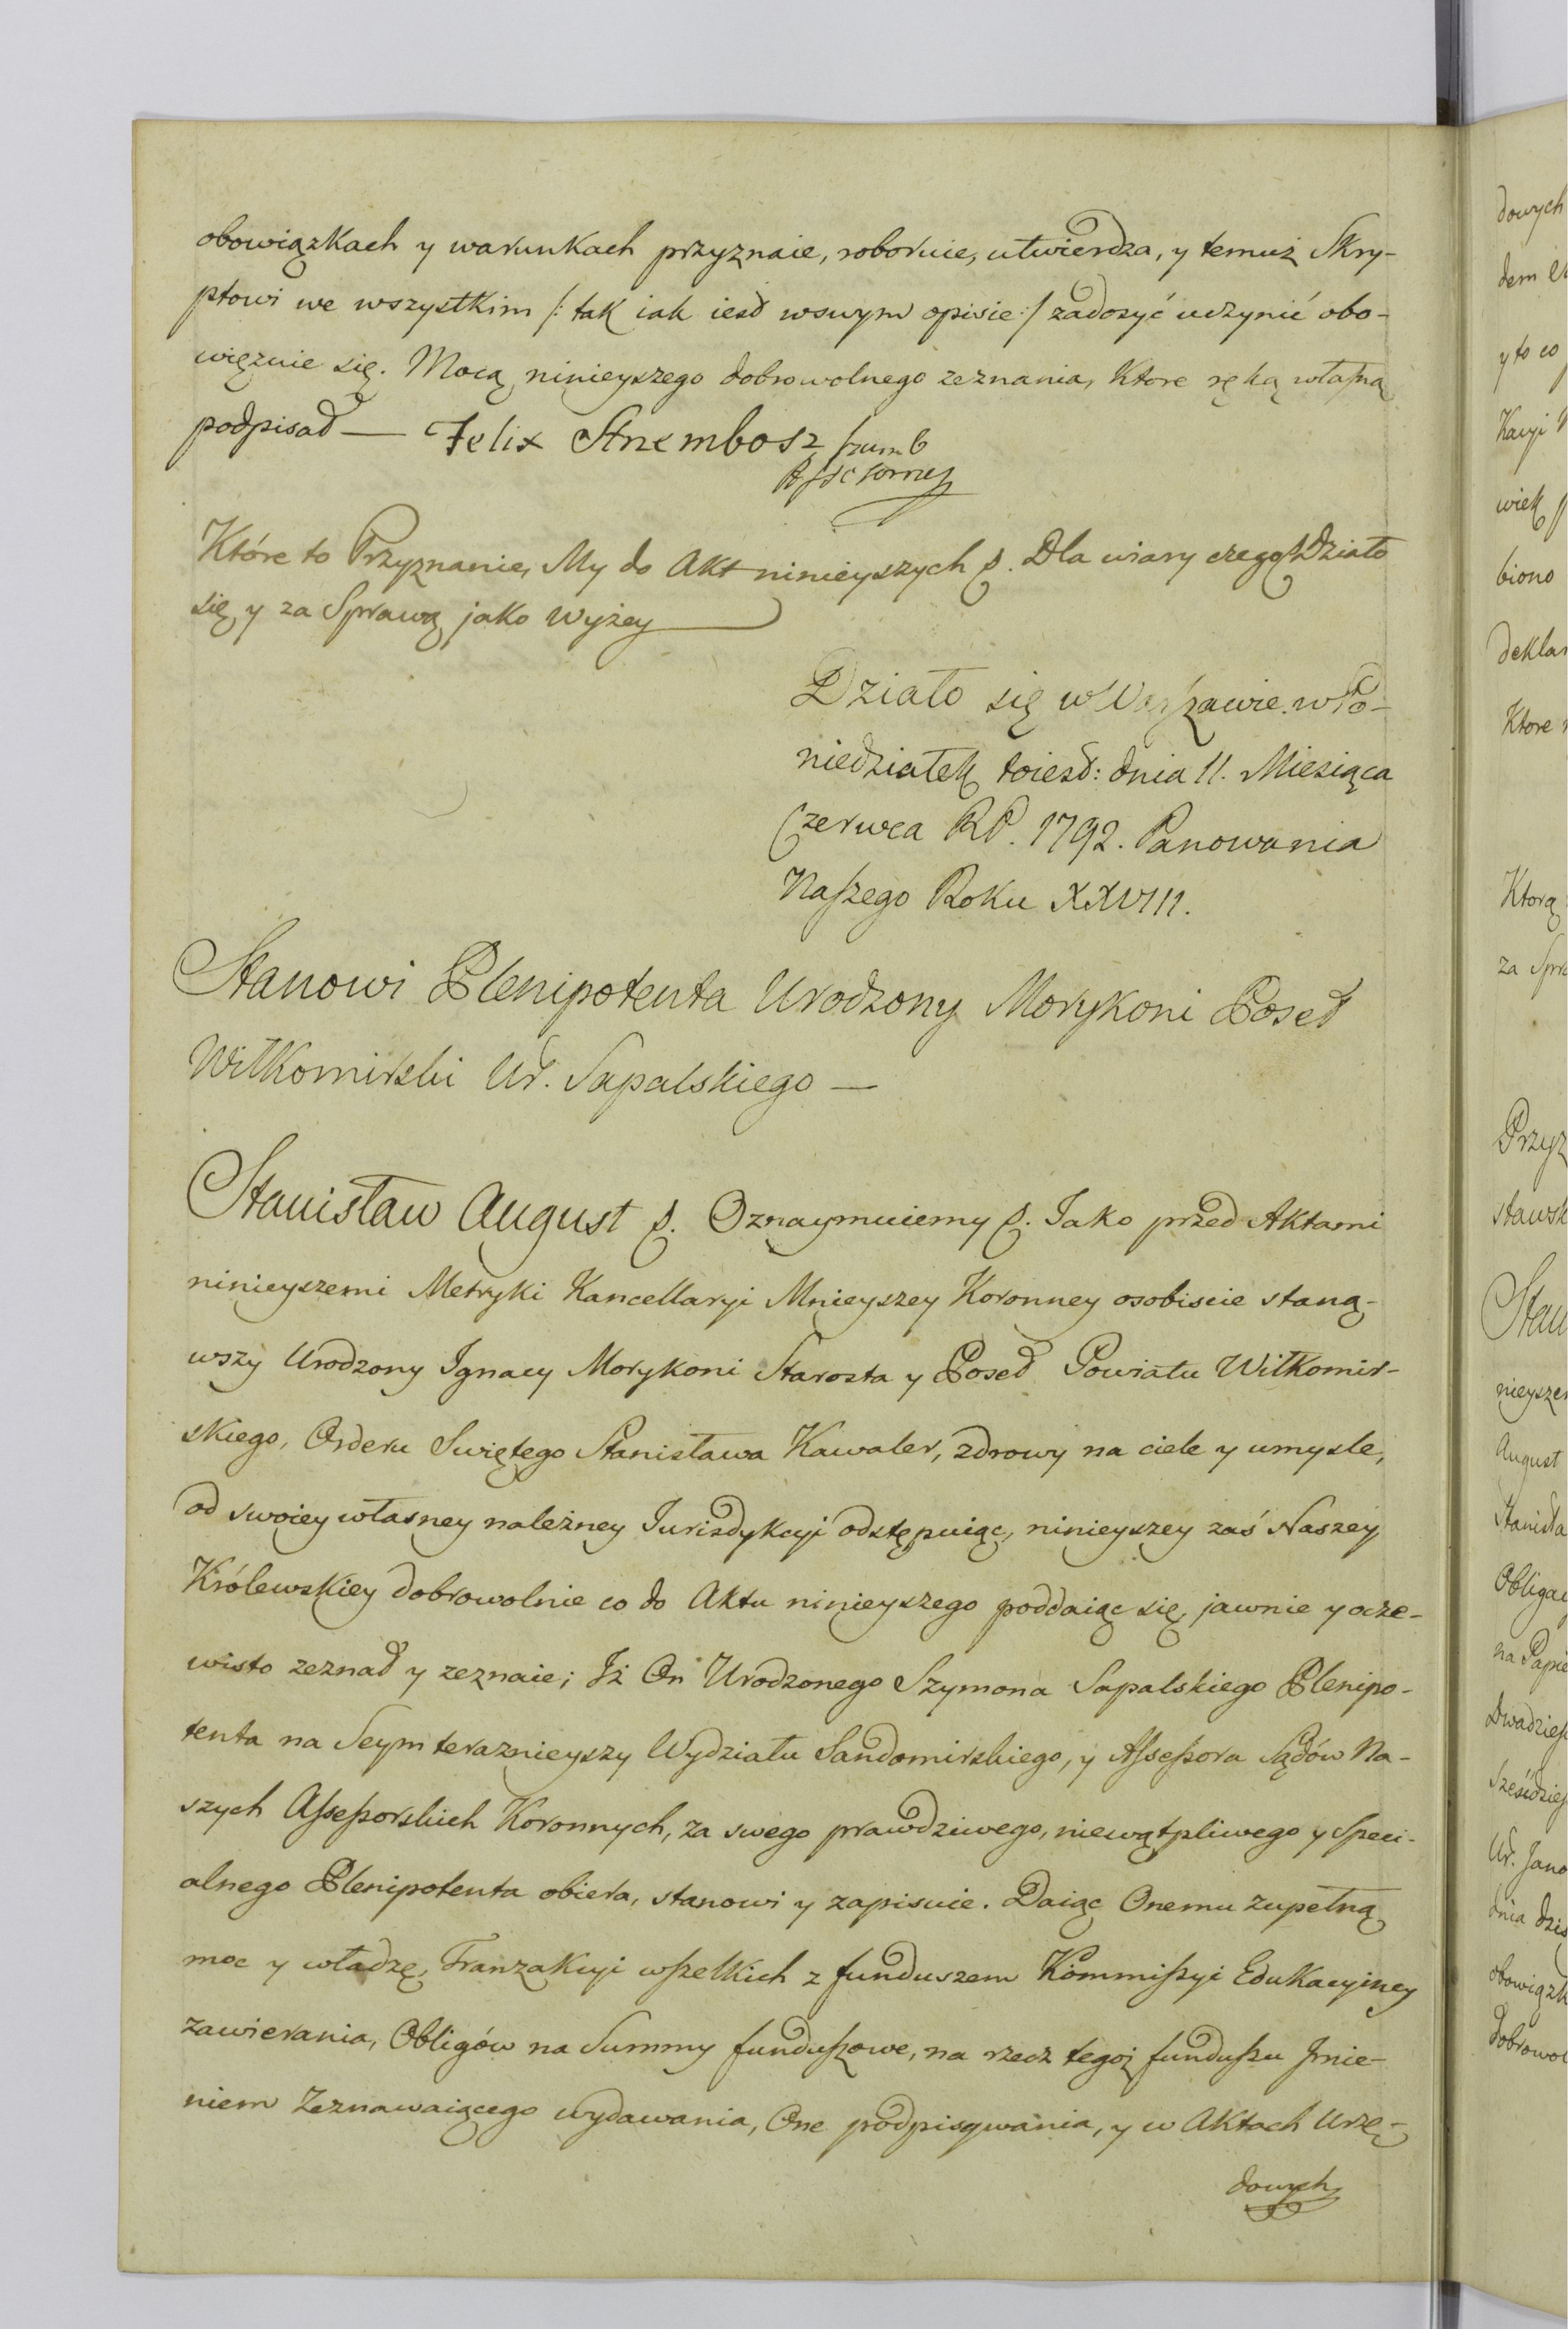 obowiązkach y warunkach przyznaie, roboruie, utwierdza, y temuż Skry-
ptowi we wszystkim /: tak iak iest wswym opisie :/ zadosyć uczynić obo-
więzuie się. Mocą ninieyszego dobrowolnego zeznania, ktore ręką własną
podpisał — Felix Strzembosz
Które to Przyznanie, My do Akt ninieyszych p. Dla wiary czego p. Działo
się y za Sprawą jako wyżey
Działo się w Warszawie w Po-
niedziałek toiest: dnia 11. Miesiąca
Czerwca RP. 1792. Panowania
Naszego Roku XXVIII.
Stanowi Plenipotenta Urodzony Morykoni Poseł
Wiłkomirski Ur. Sapalskiego —
Stanisław August p. Oznaymuiemy p. Iako przed Aktami
ninieyszemi Metryki Kancellaryi Mnieyszey Koronney osobiscie staną-
wszy Urodzony Ignacy Morykoni Starosta y Poseł Powiatu Wiłkomir-
skiego, Orderu Swiętego Stanisława Kawaler, zdrowy na ciele y umysle,
od swoiey własney należney Iurisdykcyi odstępuiąc, ninieyszey zaś Naszey
Królewskiey dobrowolnie co do Aktu ninieyszego poddaiąc się, jawnie y ocze-
wisto zeznał y zeznaie; Iż On Urodzonego Szymona Sapalskiego Plenipo-
tenta na Seym teraznieyszy Wydziału Sandomirskiego, y Assessora Sądów Na-
szych Assessorskich Koronnych, za swego prawdziwego, niewątpliwego y Speci-
alnego Plenipotenta obiera, stanowi y zapisuie. Daiąc Onemu zupełną
moc y władzę, Tranzakcyi wszelkich z funduszem Kommissyi Edukacyiney
zawierania, Obligów na Summy funduszowe, na rzecz tegoż funduszu Imie-
niem Zeznawaiącego wydawania, One podpisywania, y w Aktach Urzę-
dowych